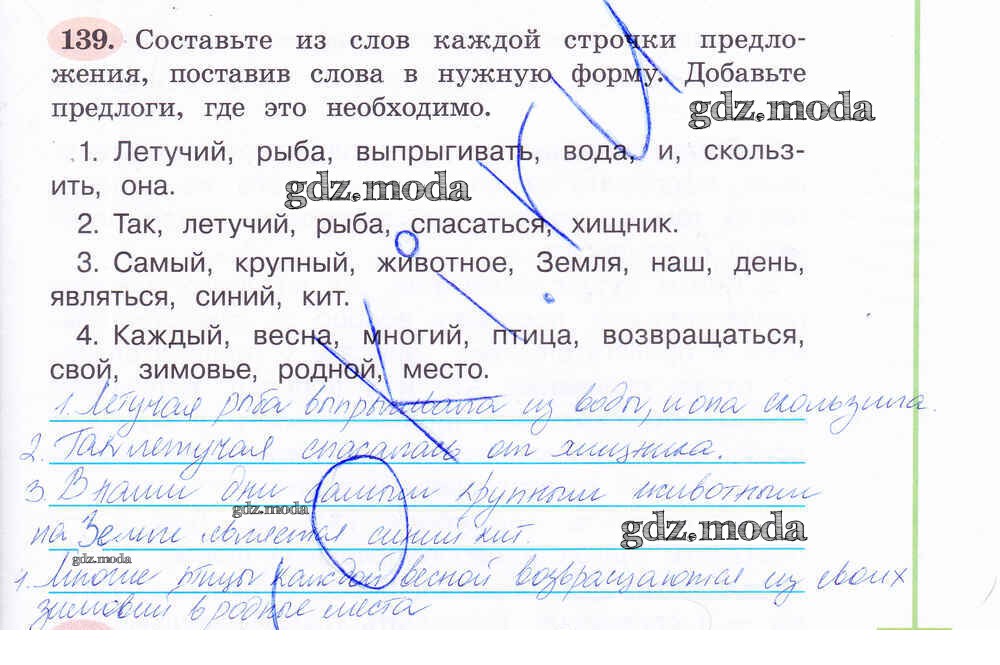 139. Составьте из слов каждой строчки предло-
жения, поставив слова в нужную форму. Добавьте
предлоги, где это необходимо.
gdz.moda
1. Летучий, рыба, выпрыгивать, вода, и, скольз-
ить, она.
gdz.moda
2. Так, летучий, рыба, спасаться, хищник.
3. Самый, крупный, животное, Земля, наш, день,
являться, синий, кит.
4. Каждый, весна, многий, птица, возвращаться,
свой, зимовье, родной, место.
1. Летучая рыба выпрыгивала из воды, и она скользила.
2. Так летучая спасалась от хищника.
3. В наши дни самым крупным животным
gdz.moda
на Земле является синий кит.
gdz.moda
gdz.moda
4. Многие птицы каждой весной возвращаются из своих
зимовий в родные места